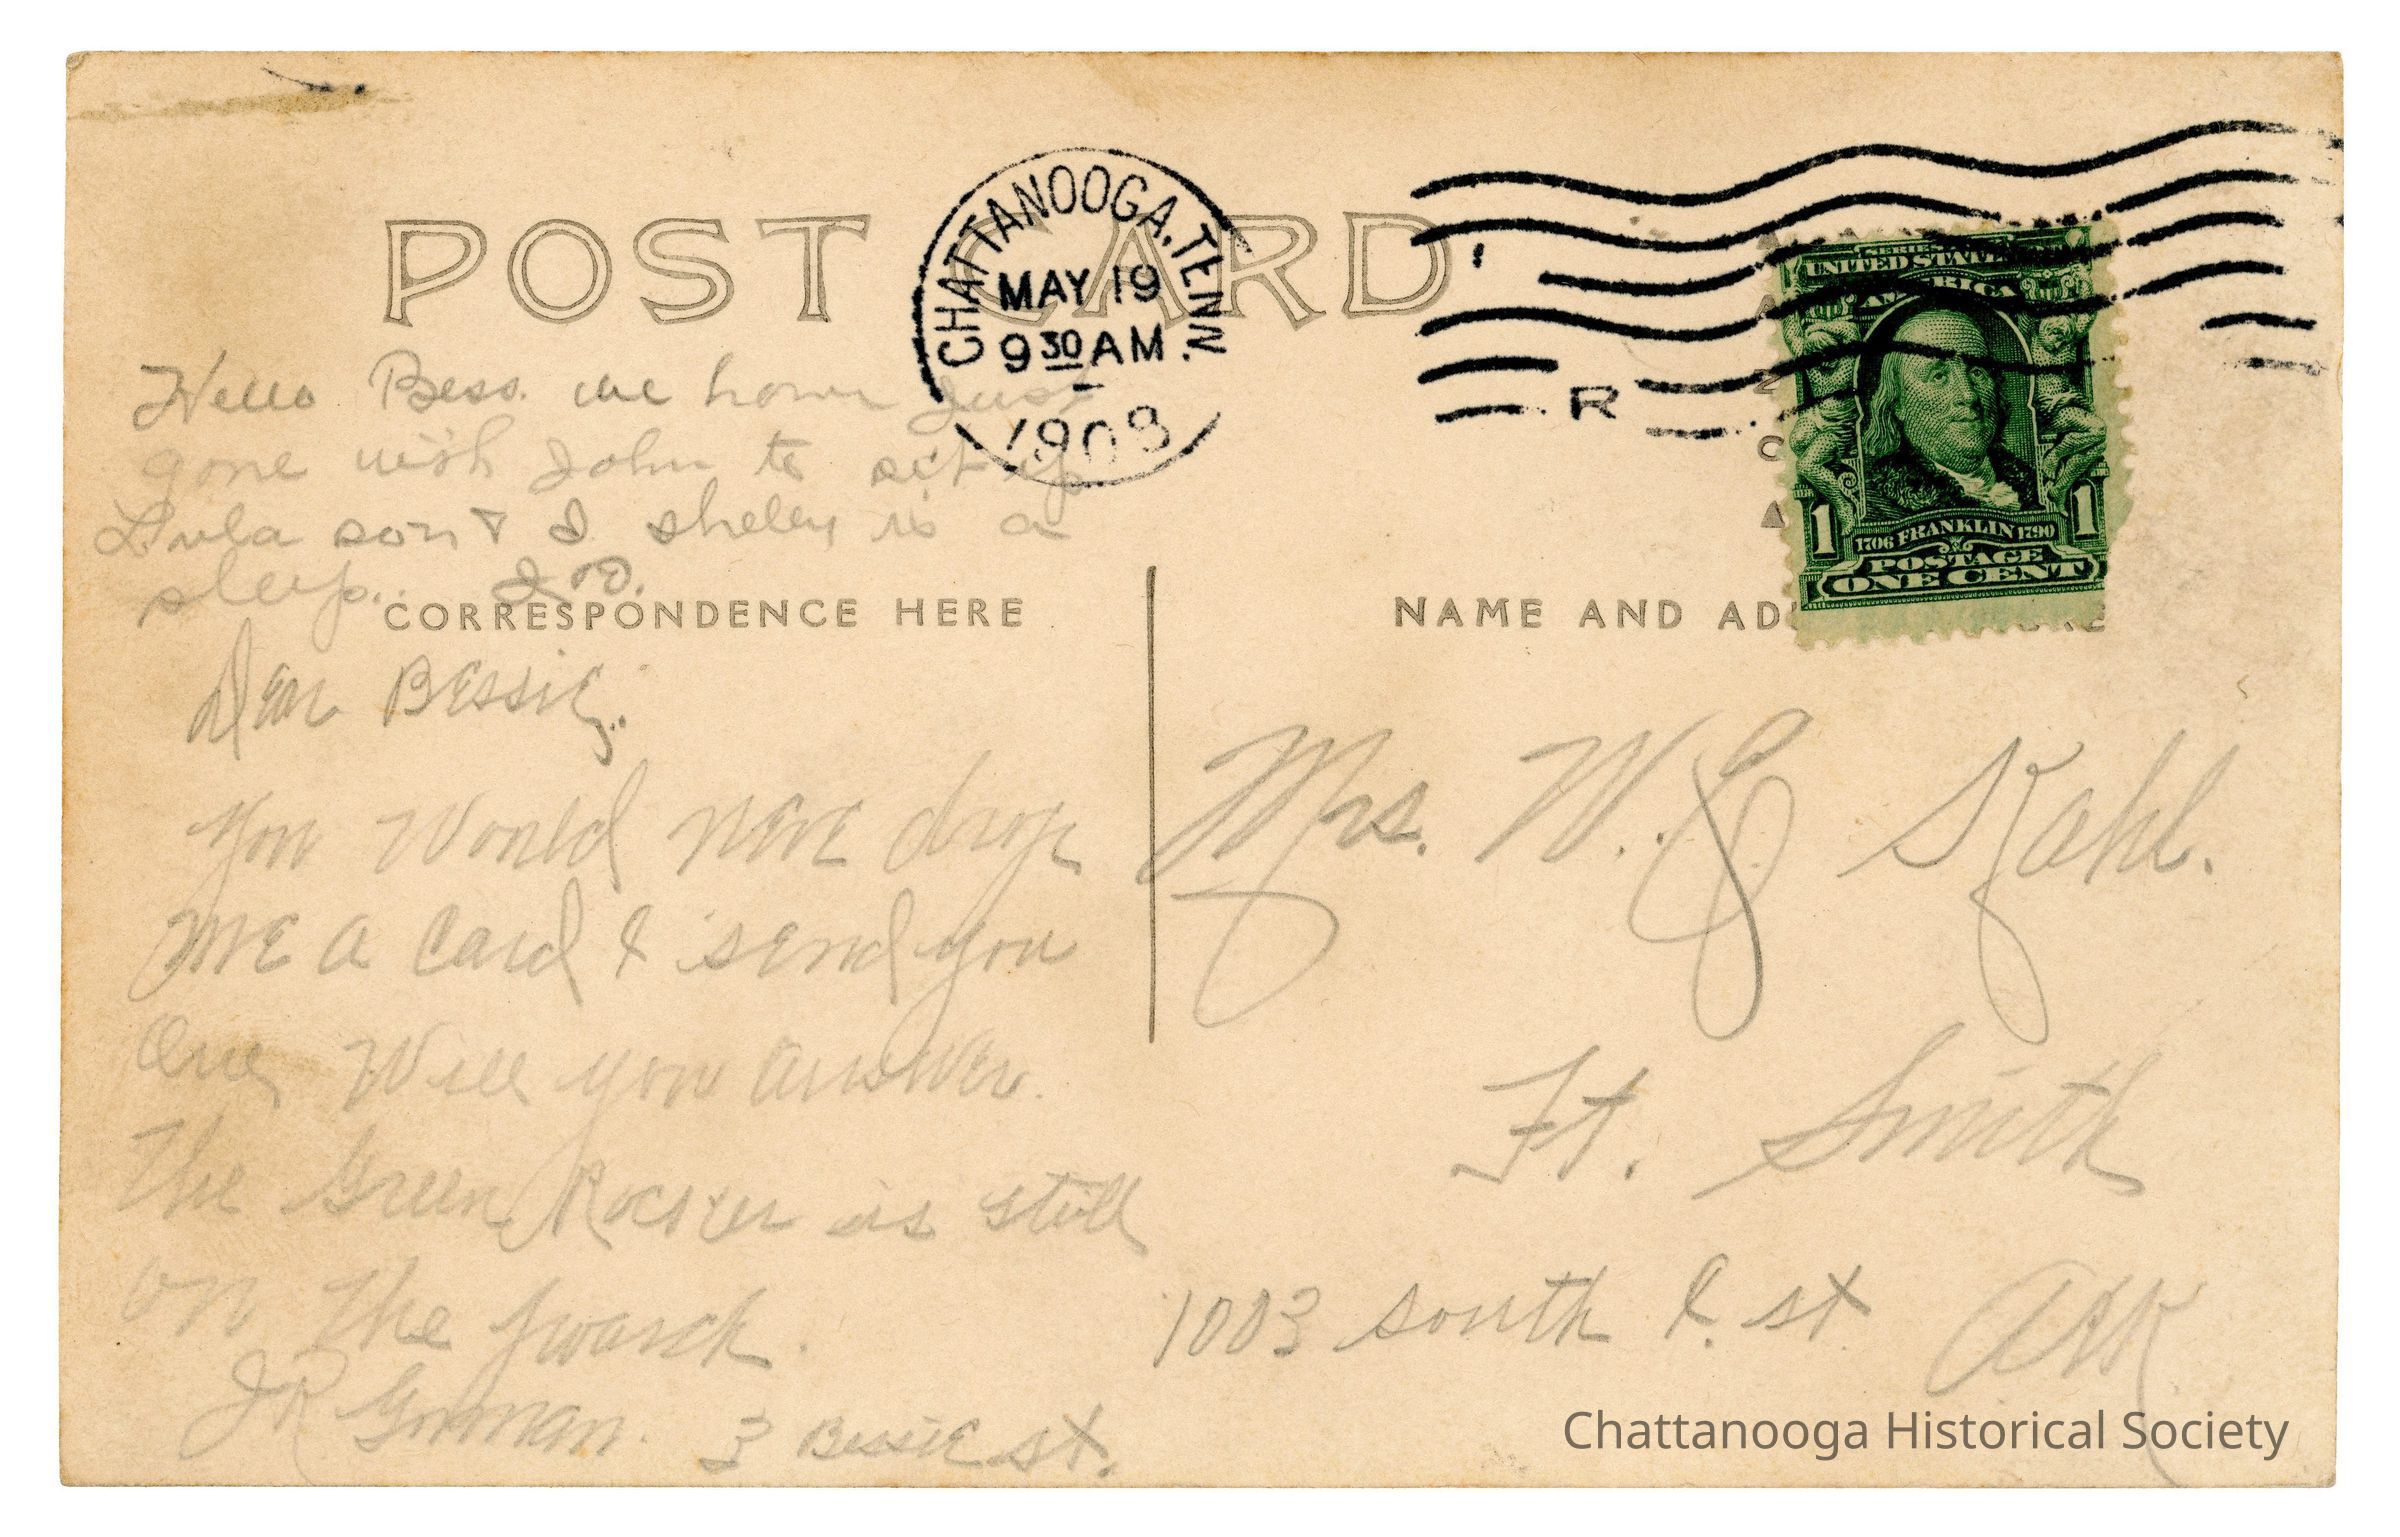 POST CARD
CHATTANOOGA, TENN.
MAY 19
9 30 AM
1908
R
A
Z
C
A
SERIES
UNITED STATES
AMERICA
1 1
1706 FRANKLIN 1790
POSTAGE
ONE CENT
Hello Bess. we have just
gone with John to sit up
Lula son & I sheley is a
sleep..
CORRESPONDENCE HERE
NAME AND AD
Dear Bessie,
you would neve drop
me a card & I send you
one, Will you answer.
The Green Rocker is still
on the pourch.
JR Gorman. 3 Bessie st.
Mrs. W. Kahl.
Ft. Smith
1003 south st Ark
Chattanooga Historical Society